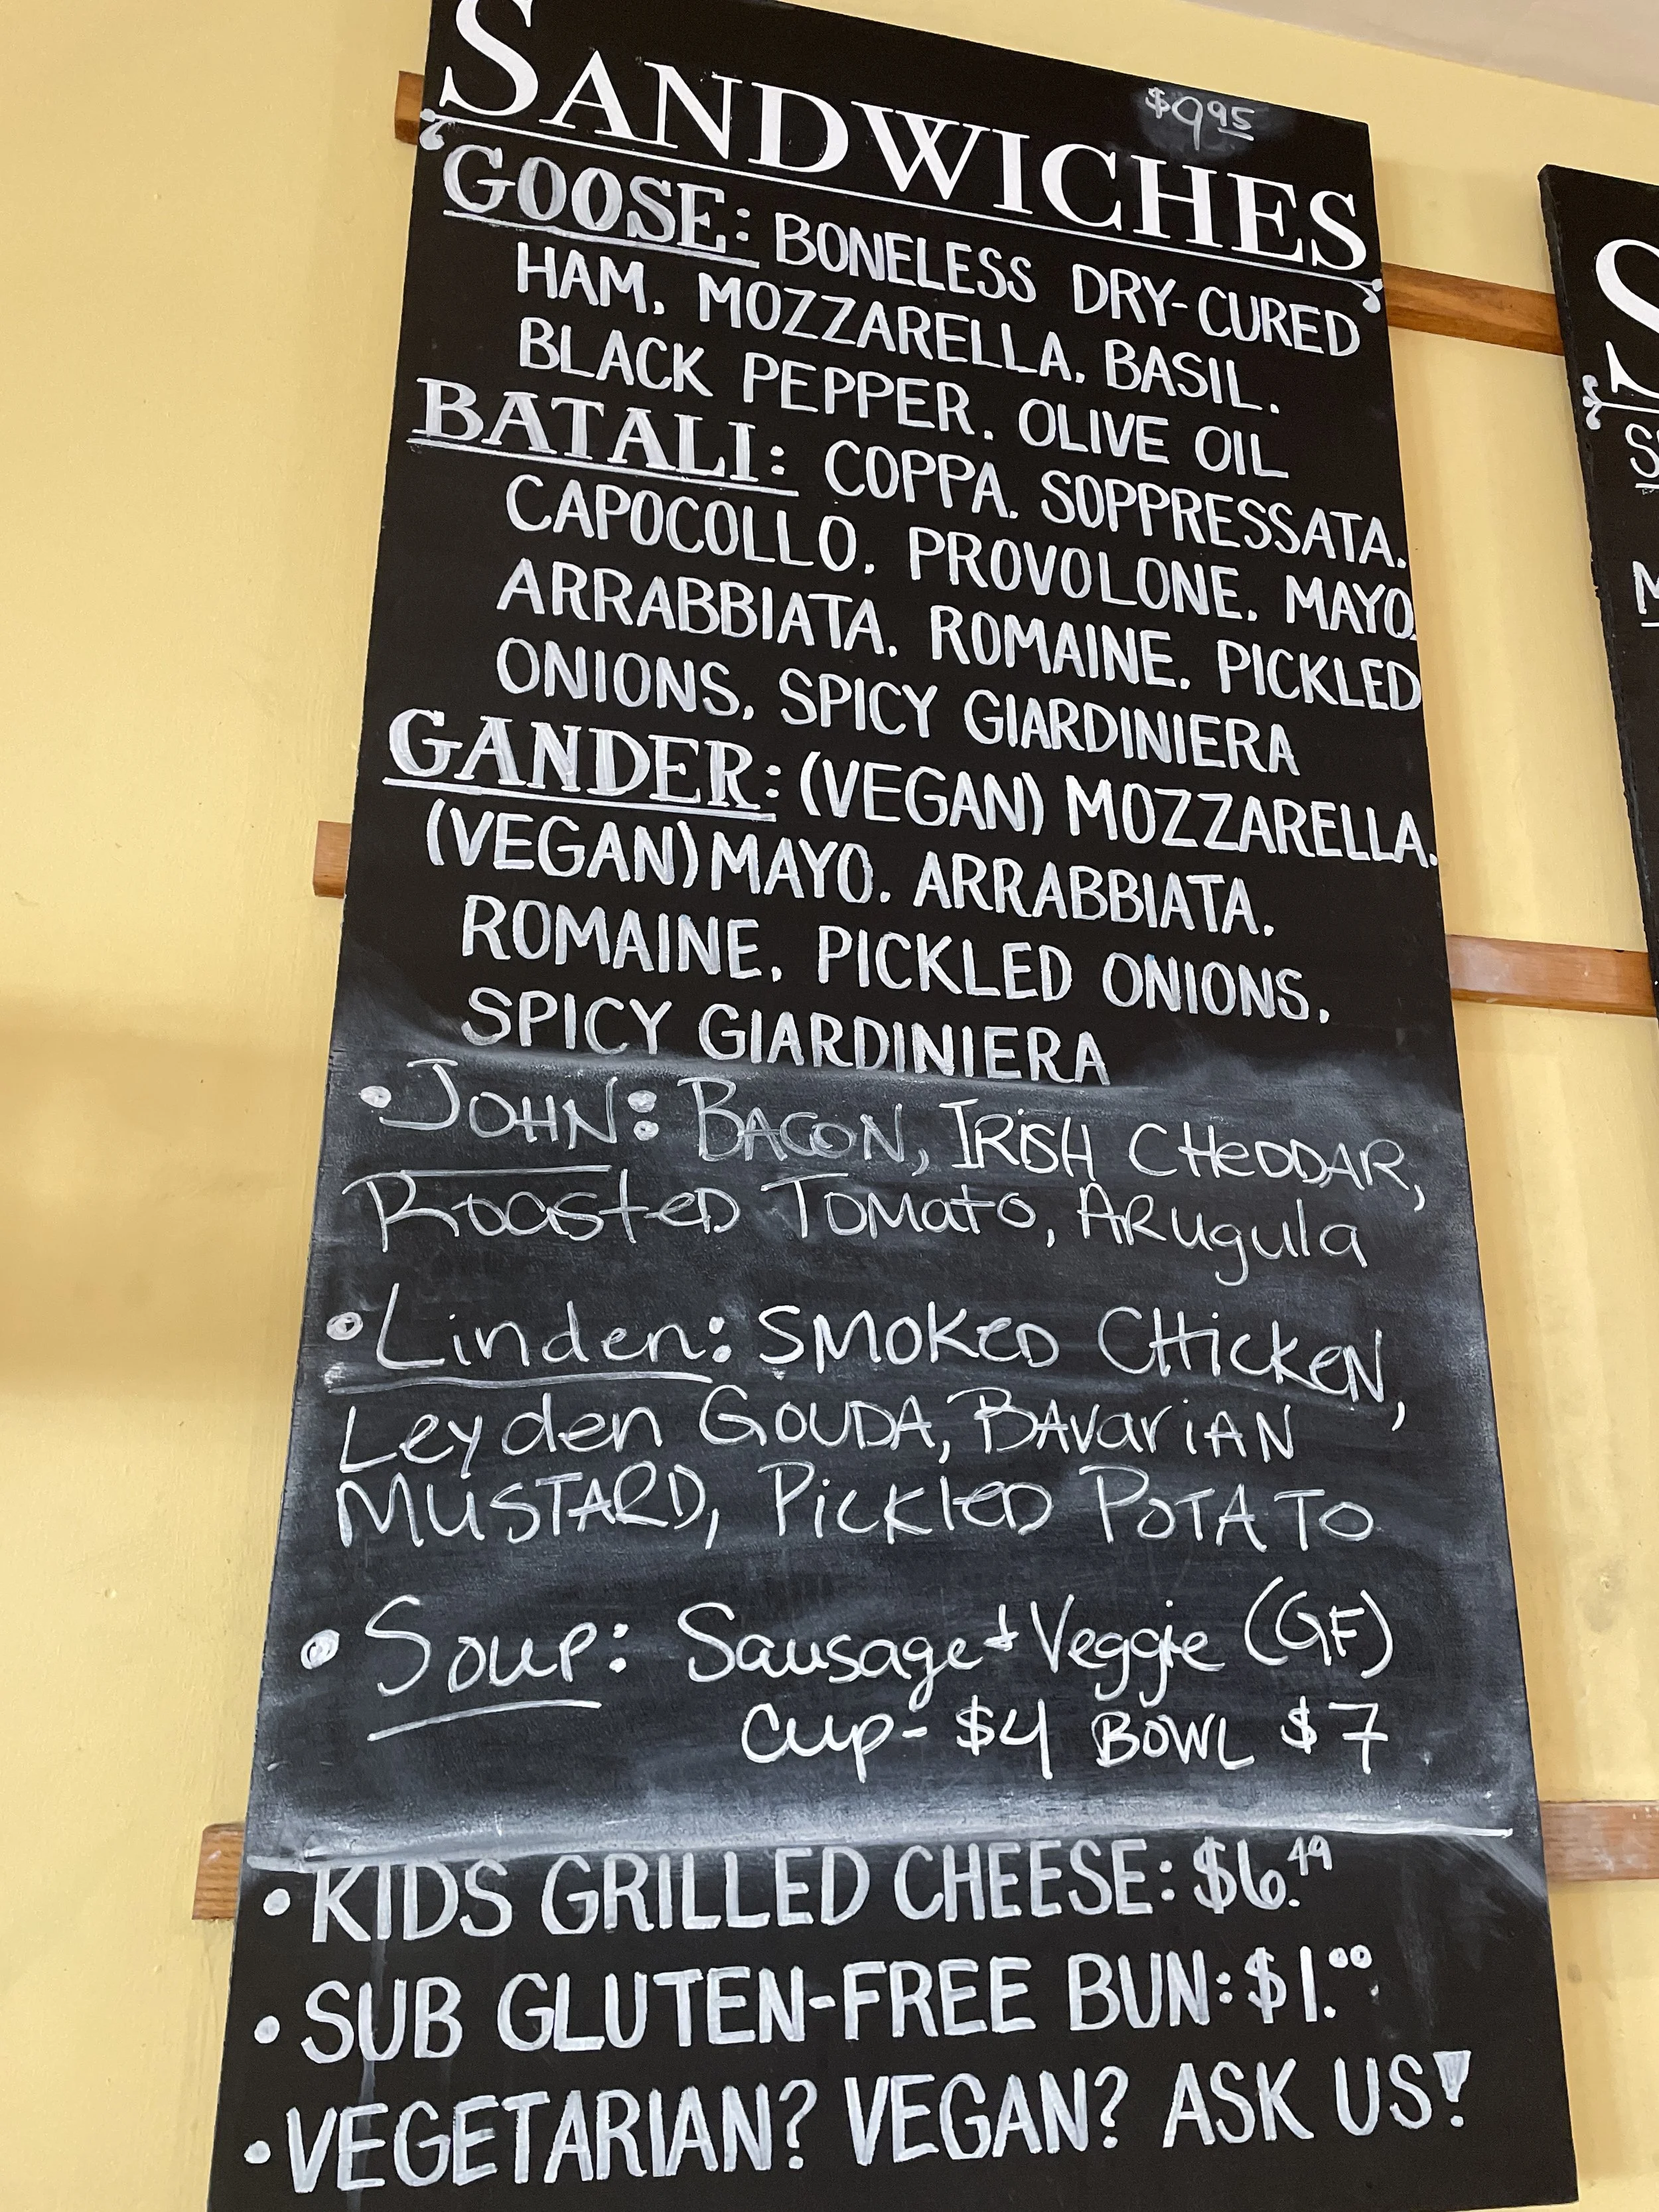 $9.95
SANDWICHES
GOOSE: BONELESS DRY-CURED
HAM, MOZZARELLA, BASIL,
BLACK PEPPER, OLIVE OIL
BATALI: COPPA, SOPPRESSATA,
CAPOCOLLO, PROVOLONE, MAYO,
ARRABBIATA, ROMAINE, PICKLED
ONIONS, SPICY GIARDINIERA
GANDER: (VEGAN) MOZZARELLA,
(VEGAN) MAYO, ARRABBIATA,
ROMAINE, PICKLED ONIONS,
SPICY GIARDINIERA
• JOHN: BACON, IRISH CHeDDAR,
RoasteD TOMatO, ARugula
• Linden: SMOKeD CHickeN,
Leyden GOUDA, BAVariAN
MUSTARD, PickleD POTATO
• Soup: Sausage + Veggie (GF)
Cup - $4 BOWL $7
• KIDS GRILLED CHEESE: $6.49
• SUB GLUTEN-FREE BUN: $1.00
• VEGETARIAN? VEGAN? ASK US!